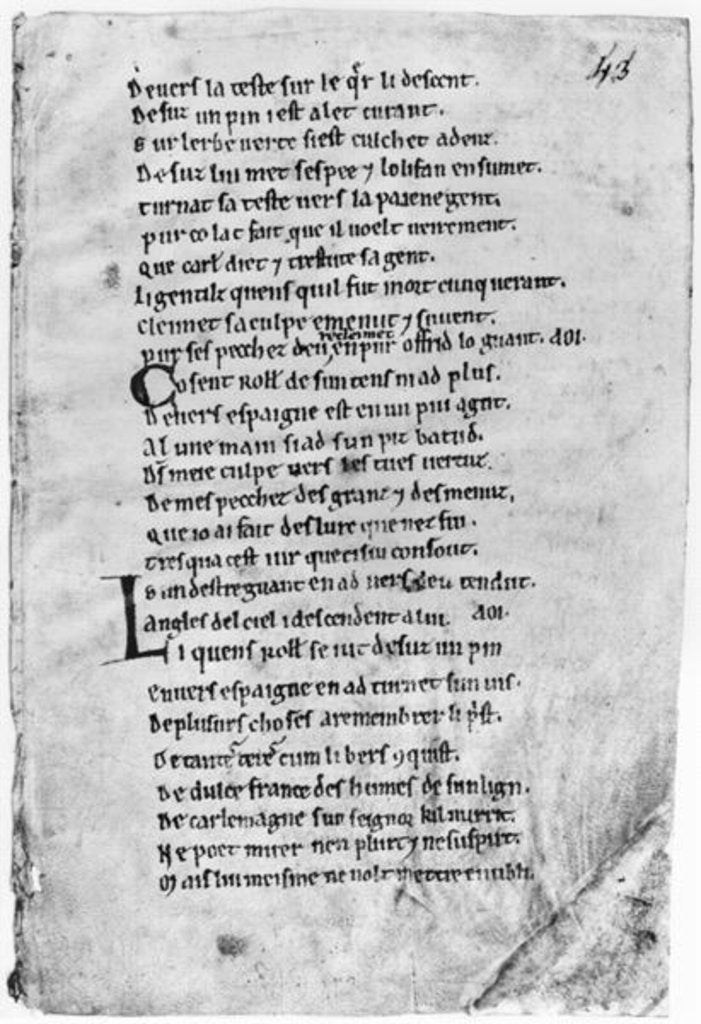 43
Devers la teste sur le q̃r li descent.
Desuz un pin i est alet curant.
Sur lerbe verte siest culchet adenz.
Desuz lui met sespee ⁊ lolifan ensumet.
turnat sa teste vers la paiene gent.
pur co lat fait que il voelt veirement.
que carl diet ⁊ trestute sa gent.
li gentilz quens quil fut mort cunquerant.
cleimet sa culpe e menut ⁊ suvent.
pur ses pecchez deu en puroffrid lo guant. AOI.
Co sent roll de sun tens ni ad plus.
Devers espaigne est en un pui agut.
Al une main si ad sun piz batud.
Ds̃ meie culpe vers les tues vertuz.
De mes pecchez des granz ⁊ des menuz,
que io ai fait des lure que nez fui.
tresqua cest iur que ci sui consout.
Sun destre guant en ad vers deu tendut.
angles del ciel i descendent a lui. AOI.
Li quens roll se iut desuz un pin
envers espaigne en ad turnet sun vis.
De plusurs choses a remembrer li p̃st.
De tantes teres cum li bers ꝯquist.
De dulce france des humes de sun lign.
De carlemagne sun seignor kil nurrit.
Ne poet muer nen plurt ⁊ ne suspirt.
Mais lui meisme ne volt mettre en ubli.